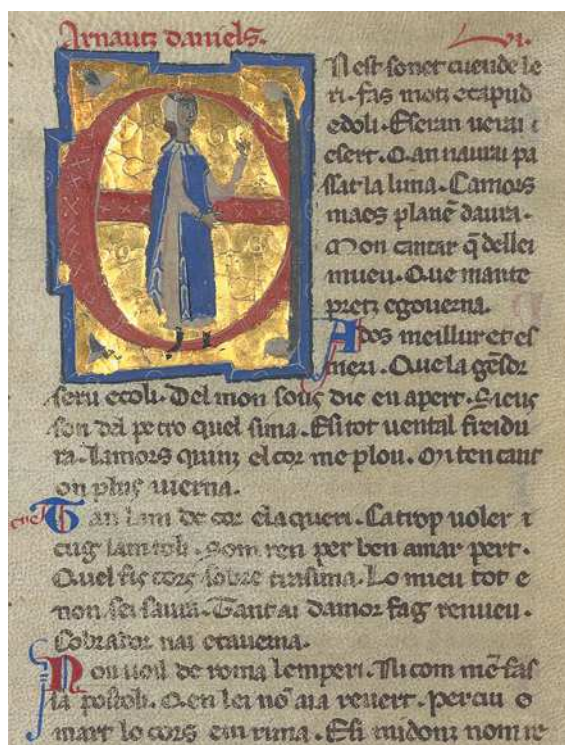 Arnautz daniels.
EN est sonet cueude le
ri. fas motz ecapud
edoli. Eseran uerai i
esert. Q an naurai pa
ssat la lima. Camors
maes planē daura.
Mon cantar q̄ dellei
mueu. Que mante
pretz egouerna.
A dos meillur et es
meri. Que la gēsor
seru ecoli. Del mon sous dic en apert. Sieus
son del pe tro quel sima. Esi tot uental freidu
ra. Lamors quinz el cor me plou. Mi ten caut
on plus iuerna.
Tan lam de cor elaqueri. Catrop uoler i
cug lam toli. Som ren per ben amar pert.
Quel sis cors sobre trasima. Lo mieu tot e
non sei saura. Tant ai damor fag renueu.
Cobrador nai etauerna.
Nou uoil de roma lemperi. Ni com mē fas
la postoli. Q en lei nō aia reuert. per cui o
mart lo cors em rima. Esi midonz nom re